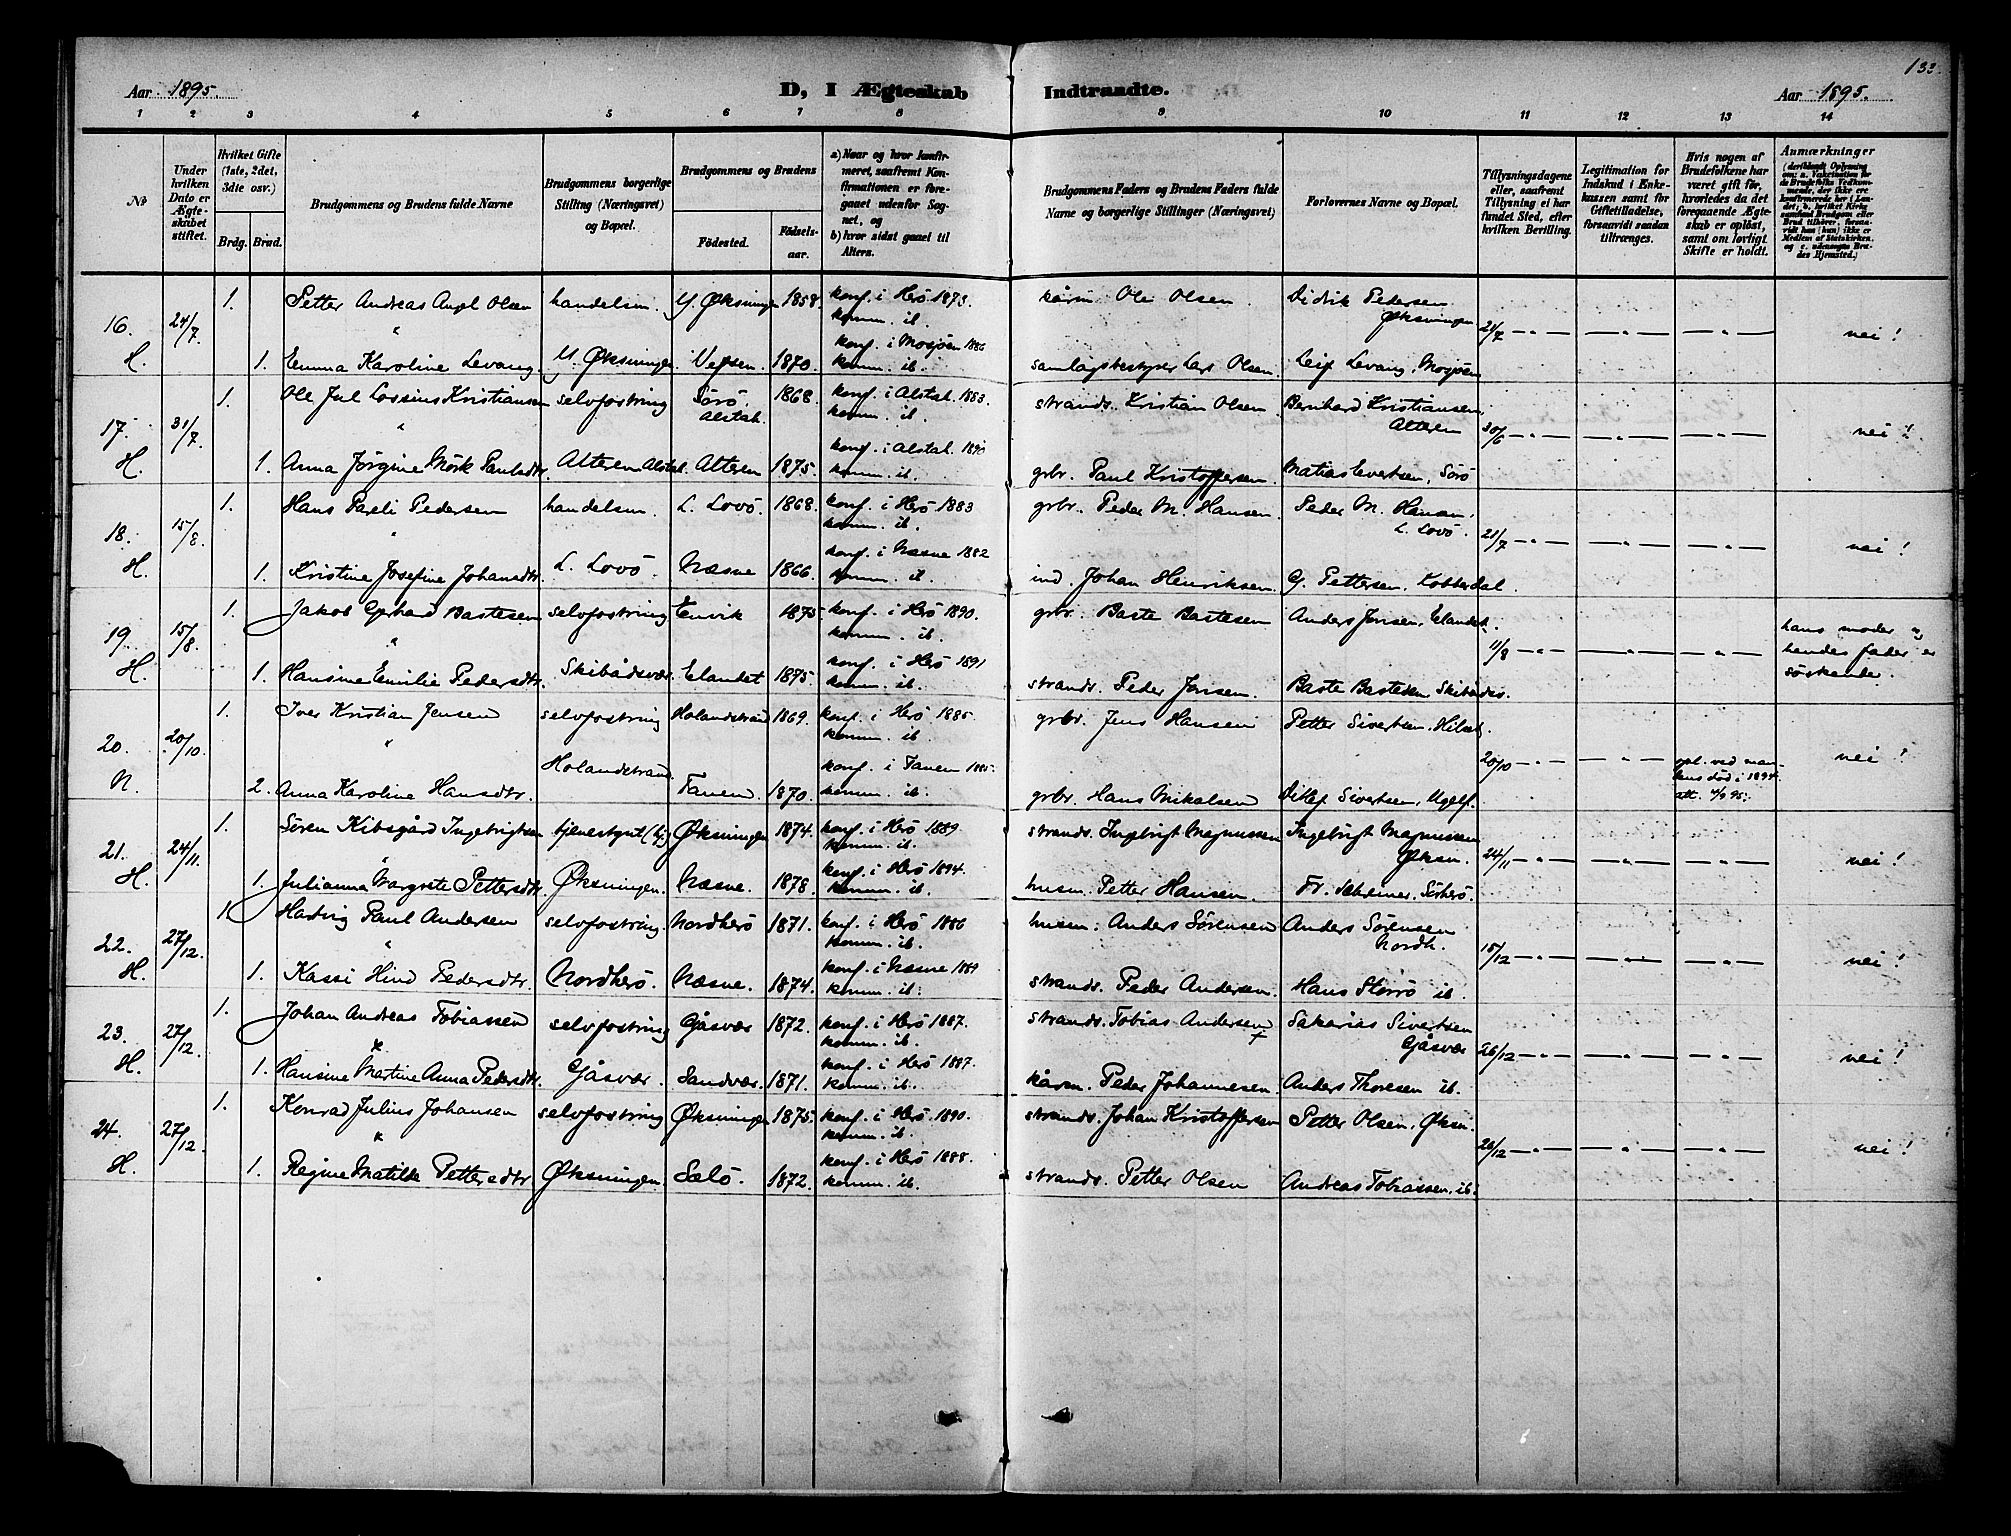 133.
Aar 1895.
D, I Ægteskab Indtraadte.
Aar 1895.
1 2 3 4 5 6 7 8 9 10 11 12 13 14
№
Under hvilken Dato er Ægteskabet stiftet.
Hvilket Gifte (1ste, 2det, 3die osv.)
Brdg. Brud.
Brudgommens og Brudens fulde Navne
Brudgommens borgerlige Stilling (Næringsvei) og Bopæl.
Brudgommens og Brudens
Fødested.
Fødselsaar.
a) Naar og hvor konfirmeret, saafremt Konfirmationen er foregaaet udenfor Sognet, og
b) hvor sidst gaaet til Alters.
Brudgommens Faders og Brudens Faders fulde Navne og borgerlige Stillinger (Næringsvei)
Forlovernes Navne og Bopæl.
Tillysningsdagene eller, saafremt Tillysning ei har fundet Sted, efter hvilken Bevilling.
Legitimation for Indskud i Enkekassen samt for Giftetilladelse, forsaavidt saadan tiltrænges.
Hvis nogen af Brudefolkene har været gift før, hvorledes da det foregaaende Ægteskab er opløst, samt om lovligt Skifte er holdt.
Anmærkninger
16. H. 24/7 1. Petter Andreas Angel Olsen handelsm. Y. Øksningen 1858 konf. i Herö 1873. komm. ib. kårm. Ole Olsen Didrik Pedersen Øksningen 21/7 — " — — " — — " — nei!
1. Emma Karoline Levang Y. Øksningen Vefsen 1870. konf. i Mosjøen 1886 komm. ib. samlagsbestyrer Lars Olsen. Leif Levang, Mosjøen
17. H. 31/7 1. Ole Jul Lossius Kristiansen selvfostring Sørö Alstah. 1868. konf. i Alstah. 1883. komm. ib. strands. Kristian Olsen Bernhard Kristiansen, Alteren 30/6 — " — — " — — " — nei!
1. Anna Jørgine Mörk Paulsdtr. Alteren Alstah. Alteren 1875. konf. i Alstah. 1890 komm. ib. grbr. Paul Kristoffersen. Matias Evertsen, Sørö
18. H. 15/8. 1. Hans Pareli Pedersen handelsm. L. Lovö. 1868. konf. i Herö 1883 komm. ib. grbr. Peder M. Hansen. Peder M. Hansen. L. Lovö. 21/7 — " — — " — — " — nei!
1. Kristine Josefine Johansdtr. L. Lovö. Næsne 1866. konf. i Næsne 1882 komm. ib. ind. Johan Henriksen G. Pettersen, Kobberdal
19. H. 15/8. 1. Jakob Gerhard Bastesen selvfostring Envik 1875. konf. i Herö 1890. komm. ib. grbr. Baste Bastesen Anders Jensen, Elandet. 11/8 — " — — " — — " — hans moder og hendes fader er söskende.
1. Hansine Emilie Pedersdtr. Skibådsvær. Elandet 1875. konf. i Herö 1891 komm. ib. strands. Peder Jensen. Baste Bastesen Skibådsv.
20. N. 20/10. 1. Iver Kristian Jensen selvfostring Holandstrand 1869. konf. i Herö 1885. komm. ib. grbr. Jens Hansen Petter Sivertsen, Hilset. 20/10 — " — — " — opl. ved mandens död i 1894 att. 4/9 95. nei!
2. Anna Karoline Hansdtr. Holandstrand Tanem 1870. konf. i Tanem 1885. komm. ib. grbr. Hans Mikalsen Ditlef Sivertsen,
21. H. 24/11. 1. Søren Kibsgård Ingebrigtsen tjenestgut (fi) Øksningen 1874. konf. i Herö 1889. komm. ib. strands. Ingebrigt Magnussen Ingebrigt Magnussen Øksn. 24/11 — " — — " — — " — nei!
1. Julianna Margrete Pettersdtr. Øksningen. Næsne. 1878. konf. i Herö 1894. komm. ib. husm. Petter Hansen. Fr. Sörherö.
22. H. 27/12. 1 Hartvig Paul Andersen selvfostring Nordherö 1871. konf. i Herö 1886 komm. ib. husm. Anders Sørensen Anders Sørensen Nordh. 15/12 — " — — " — — " — nei!
1. Kassi Hind Pedersdtr. Nordherö. Næsne. 1874. konf. i Næsne 1889 komm. ib. strands. Peder Andersen. Hans Störrö ib.
23. H. 27/12. 1. Johan Andreas Tobiassen selvfostring Gåsvær 1872. konf. i Herö 1887. komm. ib. strands. Tobias Andersen + Sakarias Sivertsen Gåsvær 26/12 — " — — " — — " — nei!
1. Hansine Martine Anna Pedersdtr. Gåsvær. Sandvær. 1871. konf. i Herö 1887. komm. ib. kårm. Peder Johannesen Anders Thoresen ib.
24. H. 27/12. 1. Konrad Julius Johansen selvfostring Øksningen 1875. konf. i Herö 1890. komm. ib. strands. Johan Kristoffersen Petter Olsen, Øksn. 26/12 — " — — " — — " — nei!
1. Regine Matilde Pettersdtr. Øksningen. Selö. 1872. konf. i Herö 1888. komm. ib. strands. Petter Olsen Andreas Tobiassen, ib.